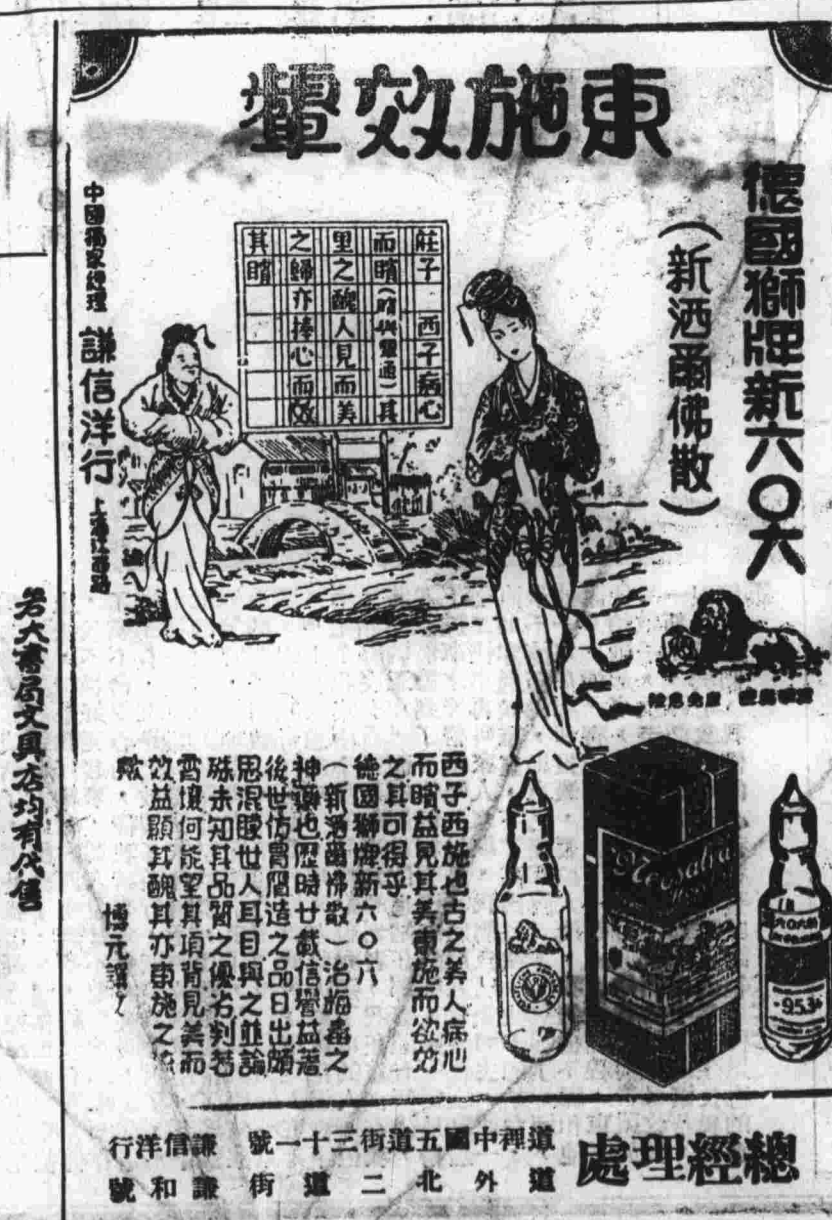 東施效顰
德國獅牌新六〇六
(新洒爾佛散)
莊子 西子病心
而矉(矉與顰通)其
里之醜人見而美
之歸亦捧心而
其矉
中國獨家經理
謙信洋行
上海江西路
西子西施也古之美人病心
而矉益見其美東施而欲効
之其可得乎
德國獅牌新六〇六
(新洒爾佛散)治梅毒之
神藥也歷時廿載信譽益著
後世仿冒偽造之品日出頗
思混矇世人耳目與之並論
殊未知其品質之優劣判若
霄壤何能望其項背見美而
效益顯其醜其亦東施之流
歟
博元謹
Neosalva
953
總經理處
道裡中國五道街三十一號 謙信洋行
道外北二道街 謙和號
各大書局文具店均有代售